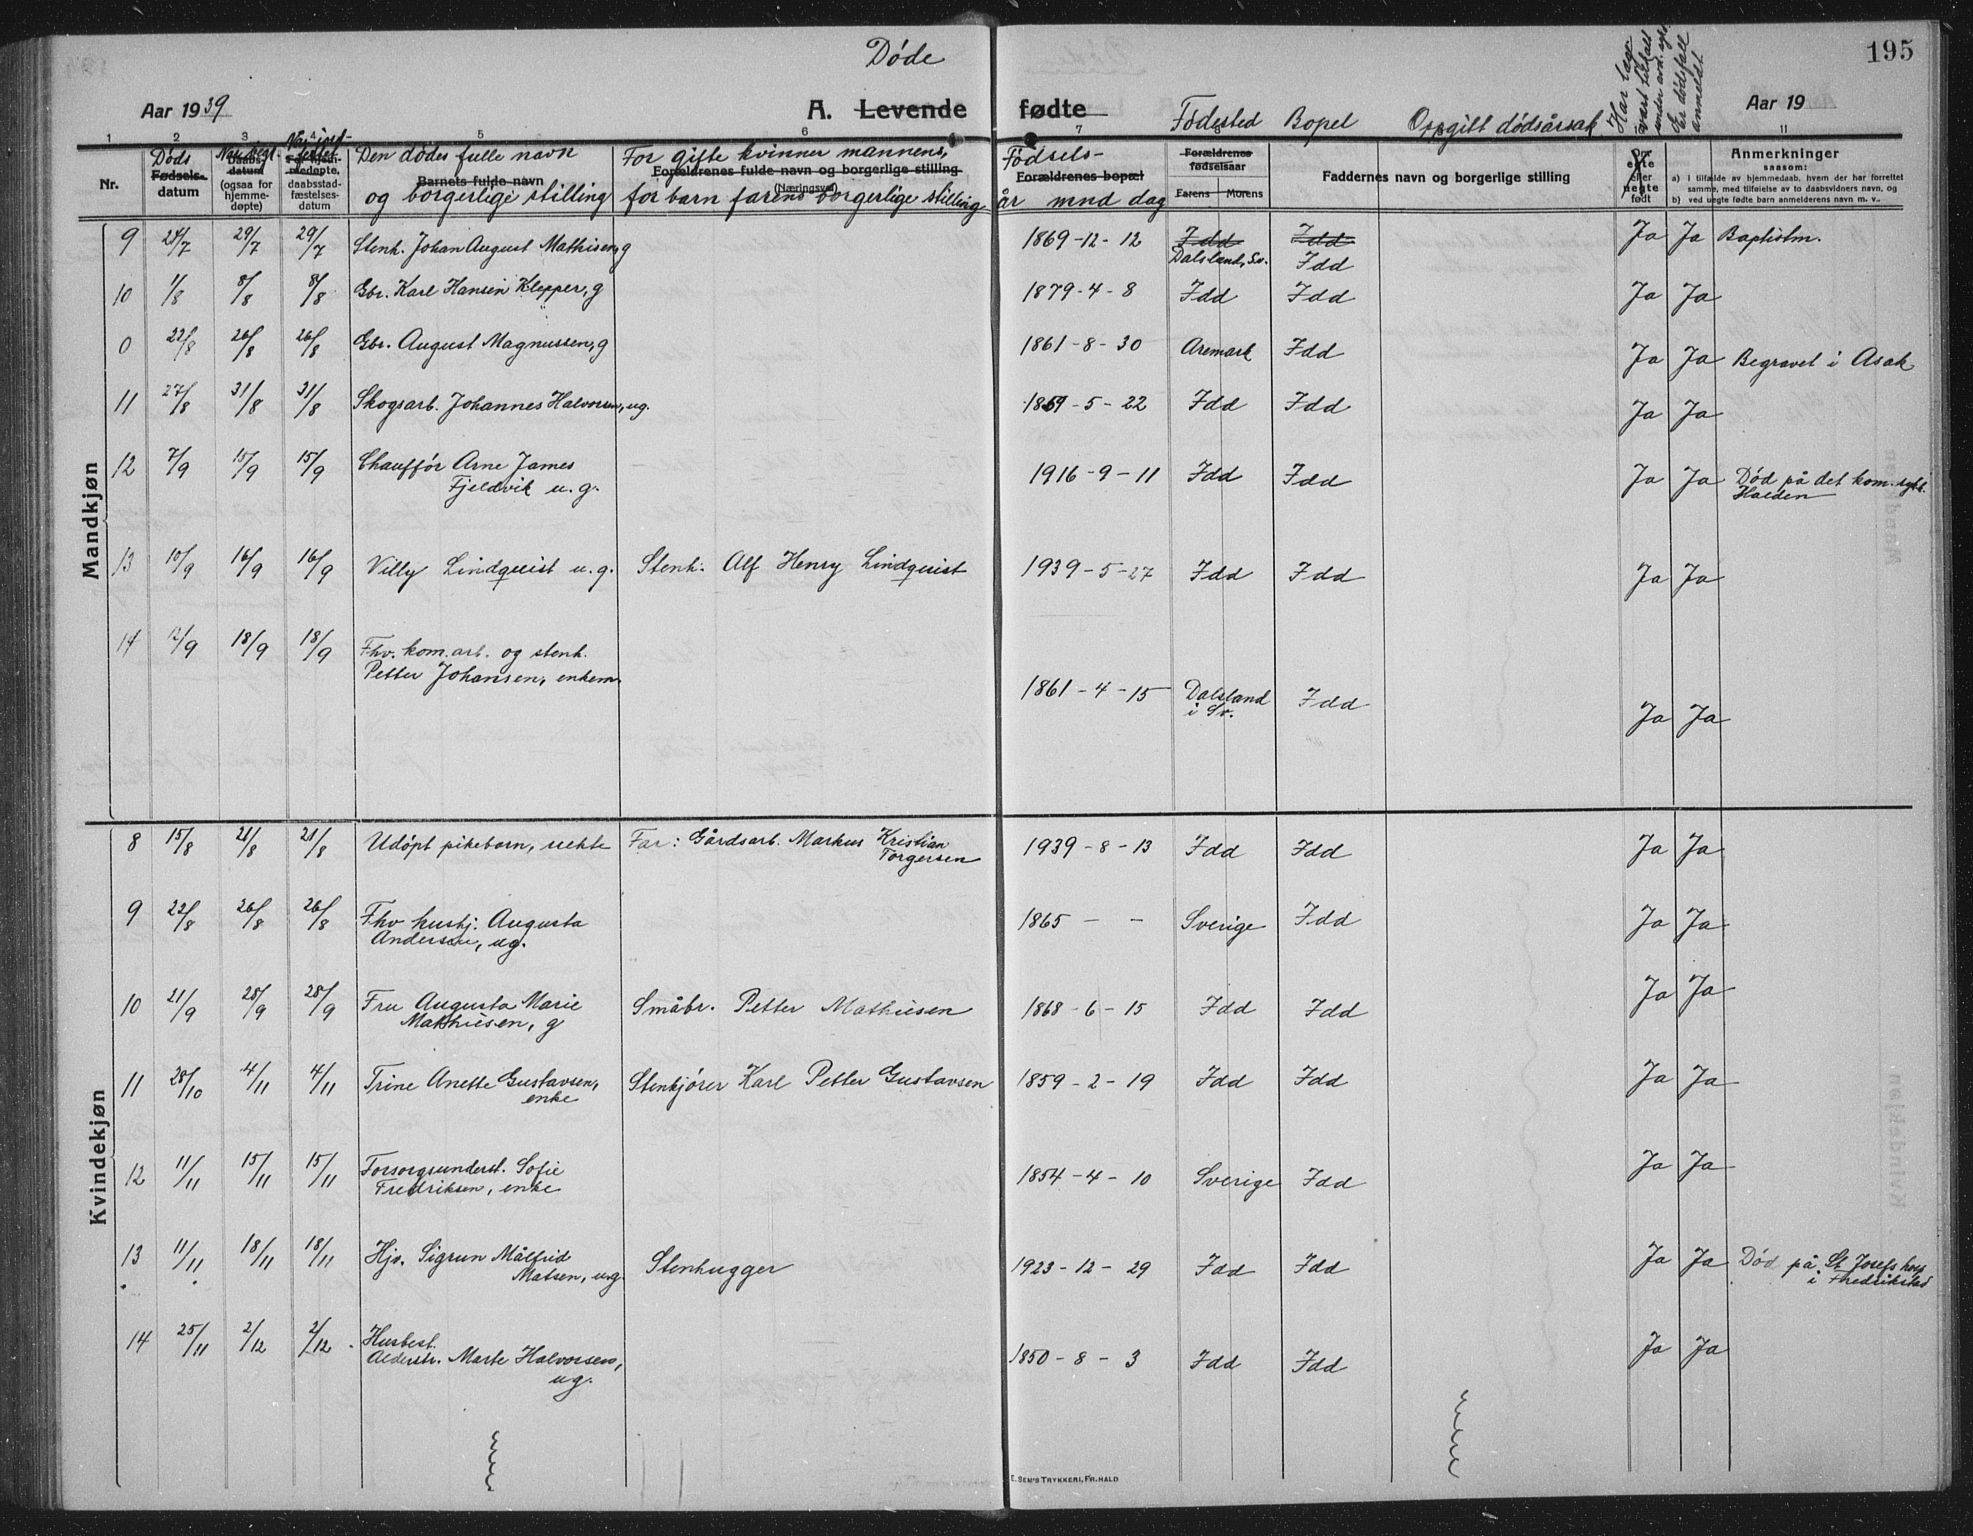 Døde
195
Aar 1939 A. Levende fødte Fødested Bopel Oppgitt dødsårsak Aar 19
Har læge vært tilkalt under
Er dødsfall anmeldt
1 2 3 5 6 7 11
Nr.
Døds
Fødsels-
datum
Daabs-
datum
(ogsaa for
hjemme-
døpte)
daabsstad-
fæstelses-
datum
Den dødes fulle navn
Barnets fulde navn
og borgerlige stilling
For gifte kvinner mannens,
Forældrenes fulde navn og borgerlige stilling
(Næringsvei)
for barn farens borgerlige stilling
Fødsels-
Forældrenes bopæl
år mnd dag
Forældrenes
fødselsaar
Farens Morens
Faddernes navn og borgerlige stilling
Om
egte
eller
uegte
født
Anmerkninger
saasom:
a) I tilfælde av hjemmedaab, hvem der har forrettet
samme, med tilføielse av to daabsvidners navn, og
b) ved uegte fødte barn anmelderens navn m. v.
Mandkjøn
9 24/7 29/7 29/7 Stenh. Johan August Mathisen, g 1869-12-12 Idd Idd Ja Ja Baptistm.
Dalsland, Sv. Idd
10 1/8 8/8 8/8 Gbr. Karl Hansen Klepper, g 1879-4-8 Idd Idd Ja Ja
0 22/8 26/8 26/8 Gbr. August Magnussen, g 1861-8-30 Aremark Idd Ja Ja Begravet i Asak
11 27/8 31/8 31/8 Skogsarb. Johannes Halvorsen, ug. 1869-5-22 Idd Idd Ja Ja
12 7/9 15/9 15/9 Chauffør Arne James 1916-9-11 Idd Idd Ja Ja Død på det kom. sykh.
Fjeldvik u. g. Halden
13 10/9 16/9 16/9 Villy Lindquist u. g. Stenh. Alf Henry Lindquist 1939-5-27 Idd Idd Ja Ja
14 12/9 18/9 18/9 Fhv. kom. arb. og stenh.
Petter Johansen, enkem. 1861-4-15 Dalsland Idd Ja Ja
i Sv.
Kvindekjøn
8 15/8 21/8 21/8 Udøpt pikebarn, uekte Far: Gårdsarb. Markus Kristian 1939-8-13 Idd Idd Ja Ja
Torgersen
9 22/8 26/8 26/8 Fhv hushj. Augusta 1865 - - Sverige Idd Ja Ja
Andersen, ug.
10 21/9 28/9 28/9 Fru Augusta Marie Småbr. Petter Mathiesen 1868-6-15 Idd Idd Ja Ja
Mathiesen, g
11 28/10 4/11 4/11 Trine Anette Gustavsen, Stenkjører Karl Petter Gustavsen 1859-2-19 Idd Idd Ja Ja
enke
12 11/11 15/11 15/11 Forsorgsunderst. Sofie 1854-4-10 Sverige Idd Ja Ja
Fredriksen, enke
13 11/11 18/11 18/11 Hjv. Sigrun Målfrid Stenhugger 1923-12-29 Idd Idd Ja Ja Død på St. Josefs hosp
Matsen, ug. i Fredrikstad
14 25/11 2/12 2/12 Husbest.
Alderstr. Marte Halvorsen, 1850-8-3 Idd Idd Ja Ja
ug.
E. SEM'S TRYKKERI, FR.HALD